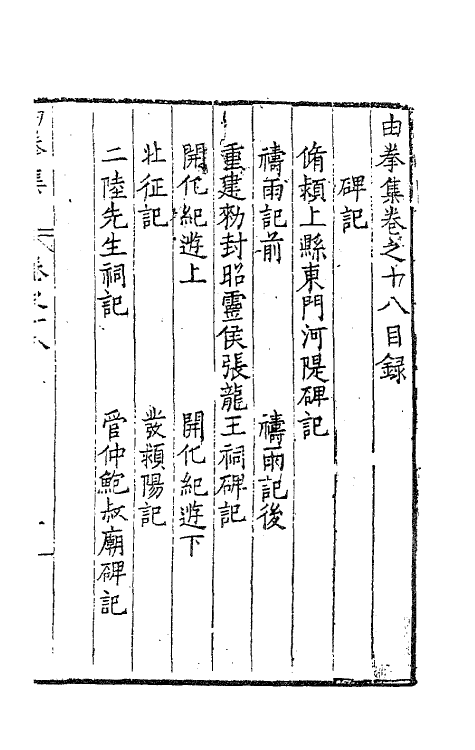 由拳集卷之十八目録
碑記
脩頴上縣東門河隄碑記
禱雨記前 禱雨記後
重建勑封昭靈侯張龍王祠碑記
開化紀遊上 開化紀遊下
壯征記 發頴陽記
二陸先生祠記 管仲鮑叔廟碑記